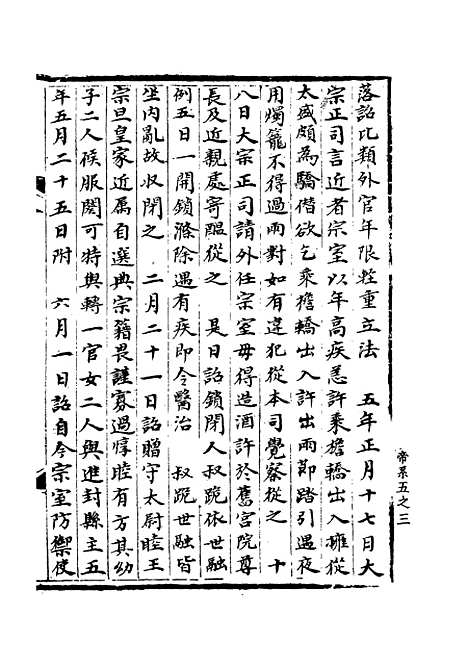 落詔比類外官年限輕重立法　五年正月十七日大
宗正司言近者宗室以年高疾恙許乘檐轎出入擁從
太盛頗為驕僭欲乞乘檐轎出入許出兩節踏引遇夜
用燭籠不得過兩對如有違犯從本司覺察從之　十
八日大宗正司請外任宗室毋得造酒許於舊宮院尊
長及近親處寄醞從之　是日詔鎖閉人叔䟦依世融
例五日一開鎖滌除遇有疾即令醫治　叔䟦世融皆
坐內亂故收閉之　二月二十一日詔贈守太尉睦王
宗旦皇家近属自選典宗籍畏謹寡過惇睦有方其幼
子二人候服闋可特與轉一官女二人與進封縣主五
年五月二十五日附　六月一日詔自今宗室防禦使
帝系五之三